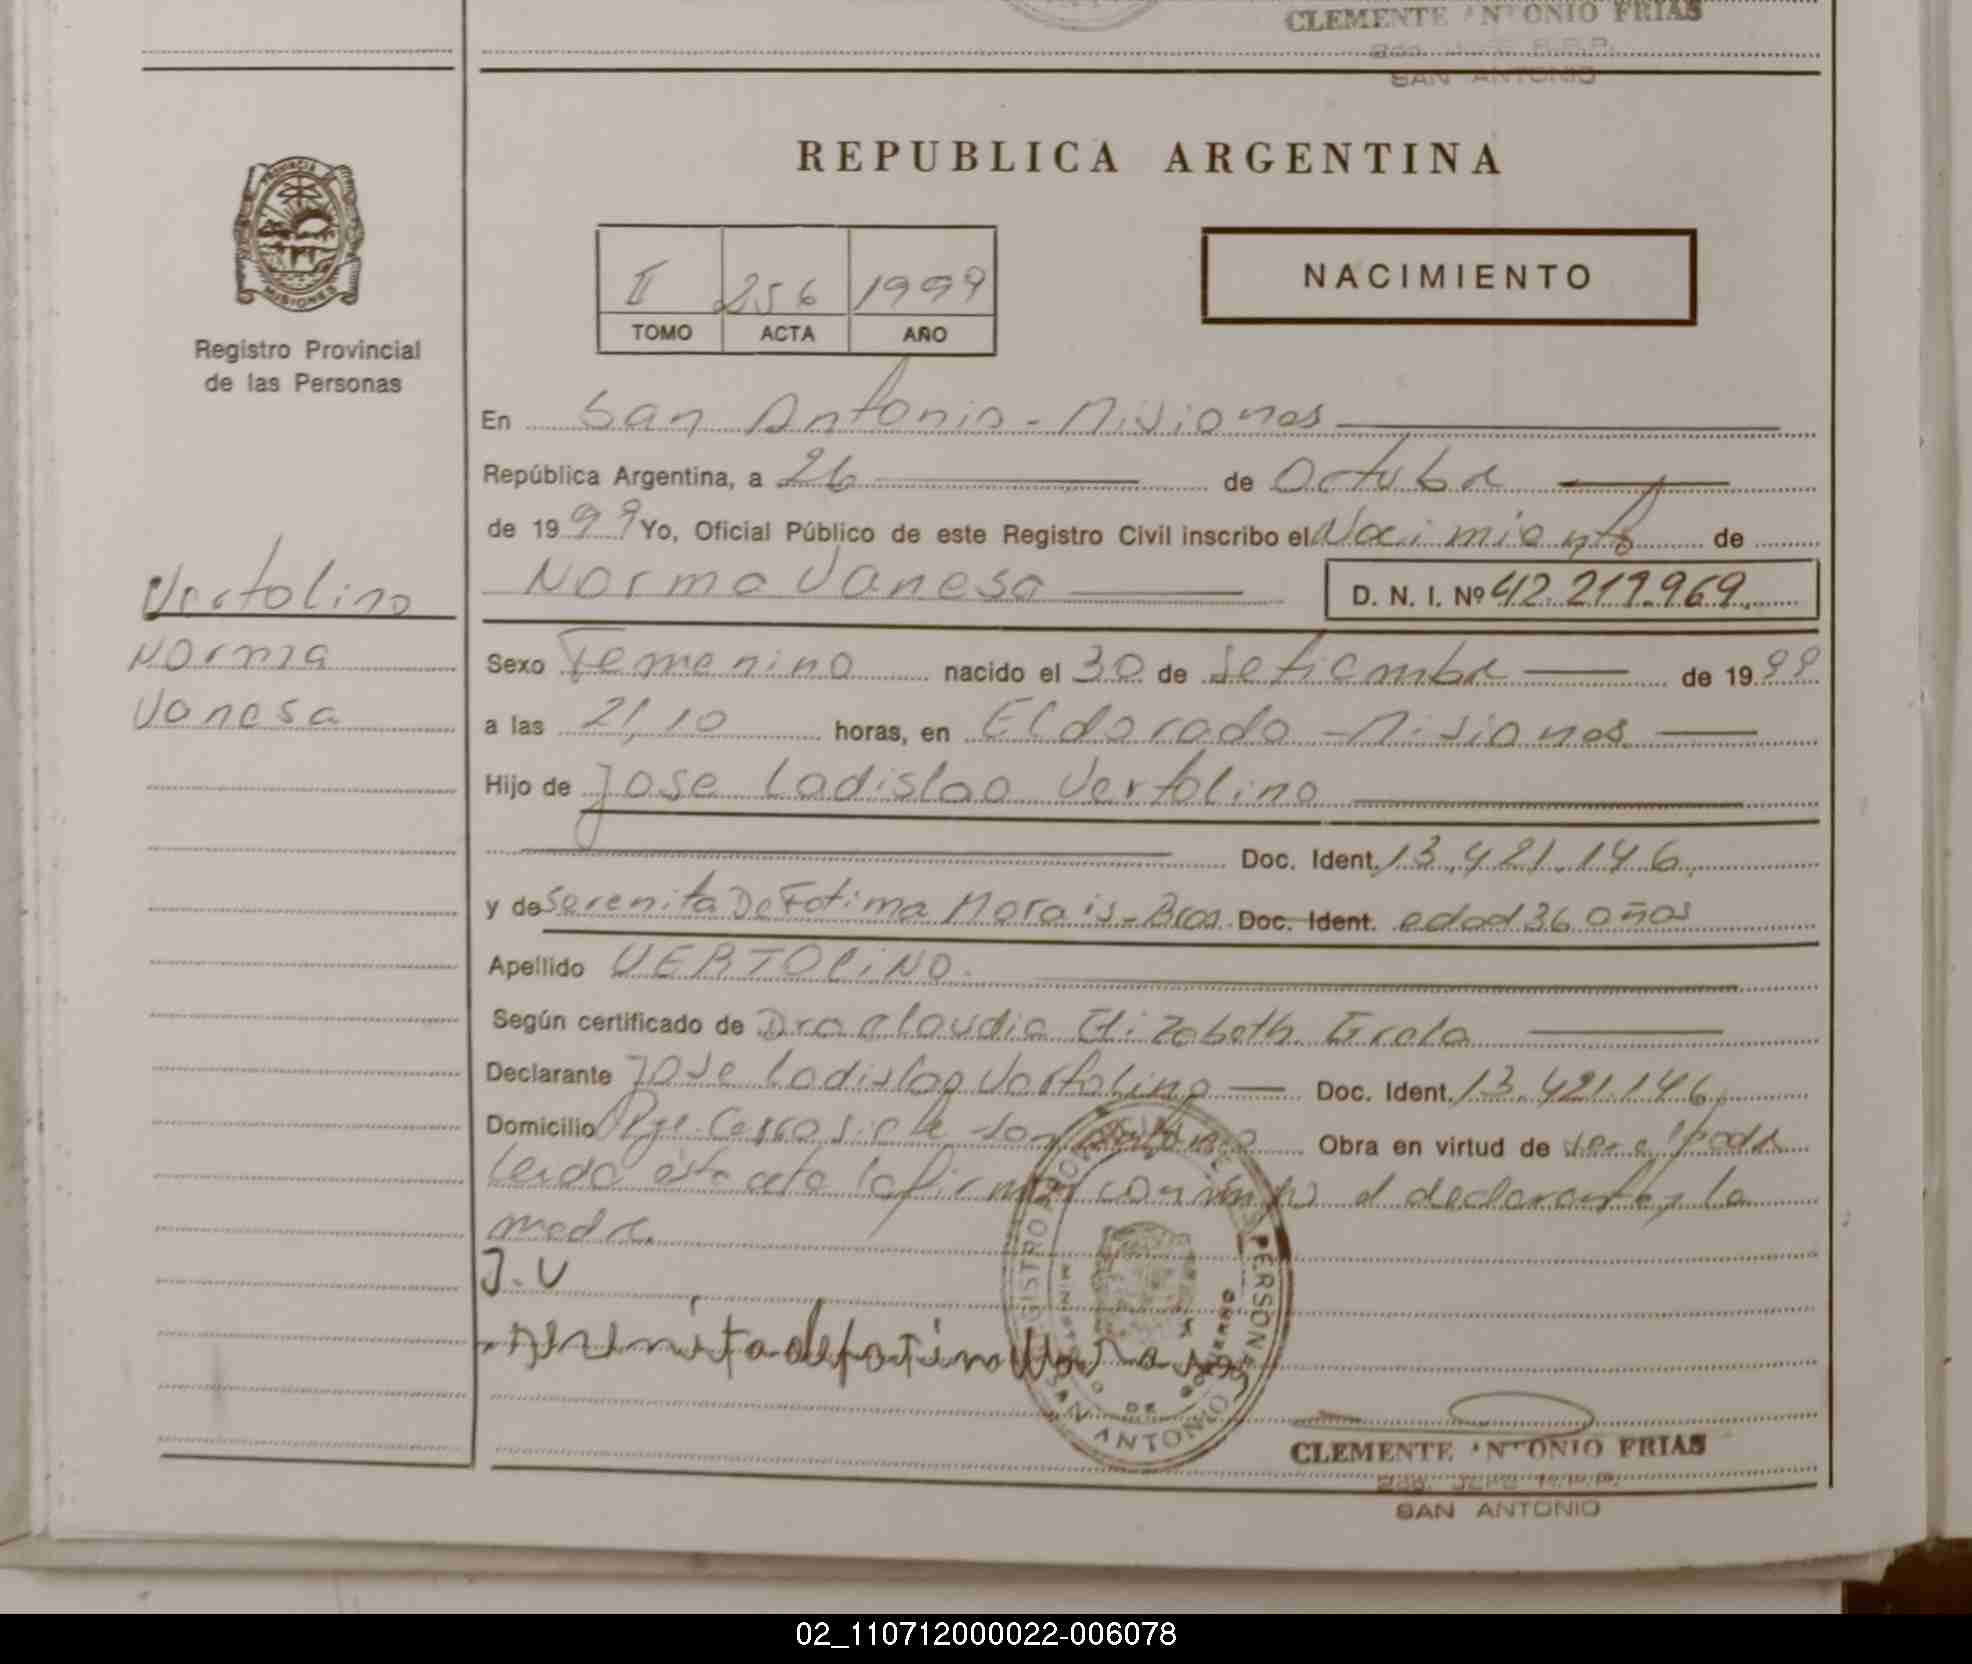 CLEMENTE ANTONIO FRIAS
SAN ANTONIO
REPUBLICA ARGENTINA
PROVINCIA
MISIONES
Registro Provincial
de las Personas
II 256 1999
TOMO ACTA AÑO
NACIMIENTO
En San Antonio - Misiones
República Argentina, a 26 de Octubre
de 1999 Yo, Oficial Público de este Registro Civil inscribo el Nacimiento de
Norma Vanesa D. N. I. Nº 42.219.969
Vertolino
Norma
Vanesa
Sexo Femenino nacido el 30 de Setiembre de 1999
a las 21,10 horas, en Eldorado - Misiones
Hijo de Jose Ladislao Vertolino
Doc. Ident. 13.421.146
y de Serenita De Fatima Morais - Bras. Doc. Ident. edad 36 años
Apellido VERTOLINO
Según certificado de Dra Claudia Elizabeth Grala
Declarante Jose Ladislao Vertolino Doc. Ident. 13.421.146
Domicilio Pje. Cerro Siete San Antonio Obra en virtud de ser el padre
Leida esta acta la firman conmigo el declarante y la
madre.
J.V
Serenita de fatima Morais
SAN ANTONIO
CLEMENTE ANTONIO FRIAS
SAN ANTONIO
02_110712000022-006078